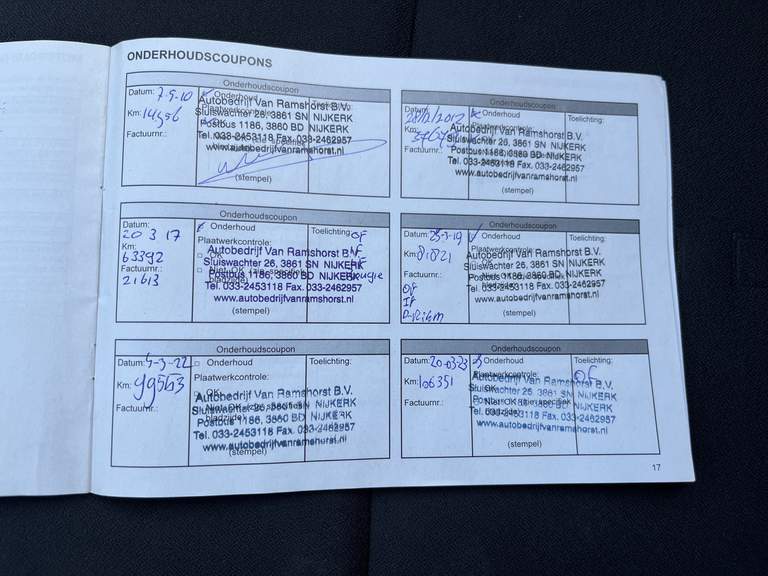 ONDERHOUDSCOUPONS
Onderhoudscoupon
Datum: 7-9-10
Onderhoud
Toelichting:
Plaatwerkcontrole:
Km:
Factuurnr.:
Autobedrijf Van Ramshorst B.V.
Sluiswachter 26, 3861 SN NIJKERK
Postbus 1186, 3860 BD NIJKERK
Tel. 033-2453118 Fax. 033-2462957
www.autobedrijfvanramshorst.nl
(stempel)
Onderhoudscoupon
Datum:
Onderhoud
Toelichting:
Plaatwerkcontrole:
Km:
Factuurnr.:
Autobedrijf Van Ramshorst B.V.
Sluiswachter 26, 3861 SN NIJKERK
Postbus 1186, 3860 BD NIJKERK
Tel. 033-2453118 Fax. 033-2462957
www.autobedrijfvanramshorst.nl
(stempel)
Onderhoudscoupon
Datum:
20 3 17
Onderhoud
Toelichting OF
Plaatwerkcontrole:
Km:
63392
OK
Factuurnr.:
21613
Autobedrijf Van Ramshorst B.V.
Sluiswachter 26, 3861 SN NIJKERK
Postbus 1186, 3860 BD NIJKERK
Tel. 033-2453118 Fax. 033-2462957
www.autobedrijfvanramshorst.nl
(stempel)
Onderhoudscoupon
Datum: 25-3-19
Onderhoud
Toelichting:
Plaatwerkcontrole:
Km: 81821
OK
Factuurnr.:
Autobedrijf Van Ramshorst B.V.
Sluiswachter 26, 3861 SN NIJKERK
Postbus 1186, 3860 BD NIJKERK
Tel. 033-2453118 Fax. 033-2462957
www.autobedrijfvanramshorst.nl
(stempel)
Onderhoudscoupon
Datum: 4-3-22
Onderhoud
Toelichting:
Plaatwerkcontrole:
Km: 99563
OK
Factuurnr.:
Autobedrijf Van Ramshorst B.V.
Sluiswachter 26, 3861 SN NIJKERK
Postbus 1186, 3860 BD NIJKERK
Tel. 033-2453118 Fax. 033-2462957
www.autobedrijfvanramshorst.nl
(stempel)
Onderhoudscoupon
Datum: 20-03-23
Onderhoud
Toelichting:
OF
Plaatwerkcontrole:
Km: 106351
OK
Factuurnr.:
Autobedrijf Van Ramshorst B.V.
Sluiswachter 26, 3861 SN NIJKERK
Postbus 1186, 3860 BD NIJKERK
Tel. 033-2453118 Fax. 033-2462957
www.autobedrijfvanramshorst.nl
(stempel)
17